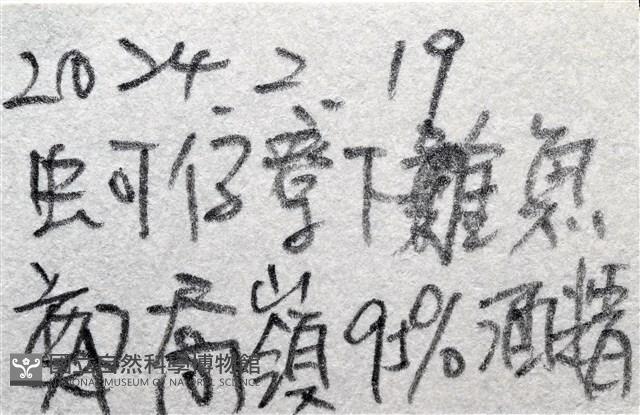 2024 2 19
蚵仔寮下雜魚
鄭秀嶺 95% 酒精
國立自然科學博物館
NATIONAL MUSEUM OF NATURAL SCIENCE